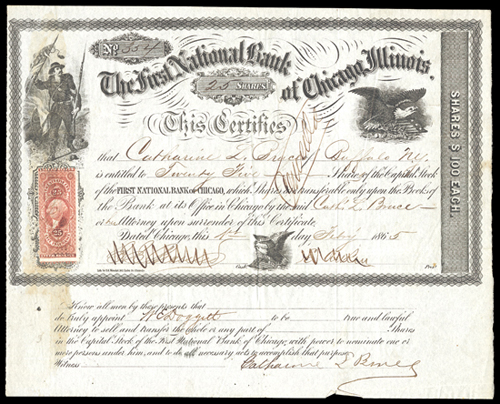 No. 554
The First National Bank
25 SHARES.
of Chicago, Illinois.
This Certifies
that Catharine L Bruce Buffalo NY.
is entitled to Twenty Five Shares of the Capital Stock
of the FIRST NATIONAL BANK OF CHICAGO, which Shares are transferable only upon the Books of
the Bank at its Office in Chicago by the said Cath. L. Bruce
or Attorney upon surrender of this Certificate.
Dated Chicago, this 4th day Feby 1865
SHARES $ 100 EACH.
25 25
Know all men by these presents that
do truly appoint W E Doggett to be true and lawful
Attorney to sell and transfer the whole or any part of Shares
in the Capital Stock of the First National Bank of Chicago, with power to nominate one or
more persons under him, and to do all necessary acts to accomplish that purpose
Witness Catharine L Bruce